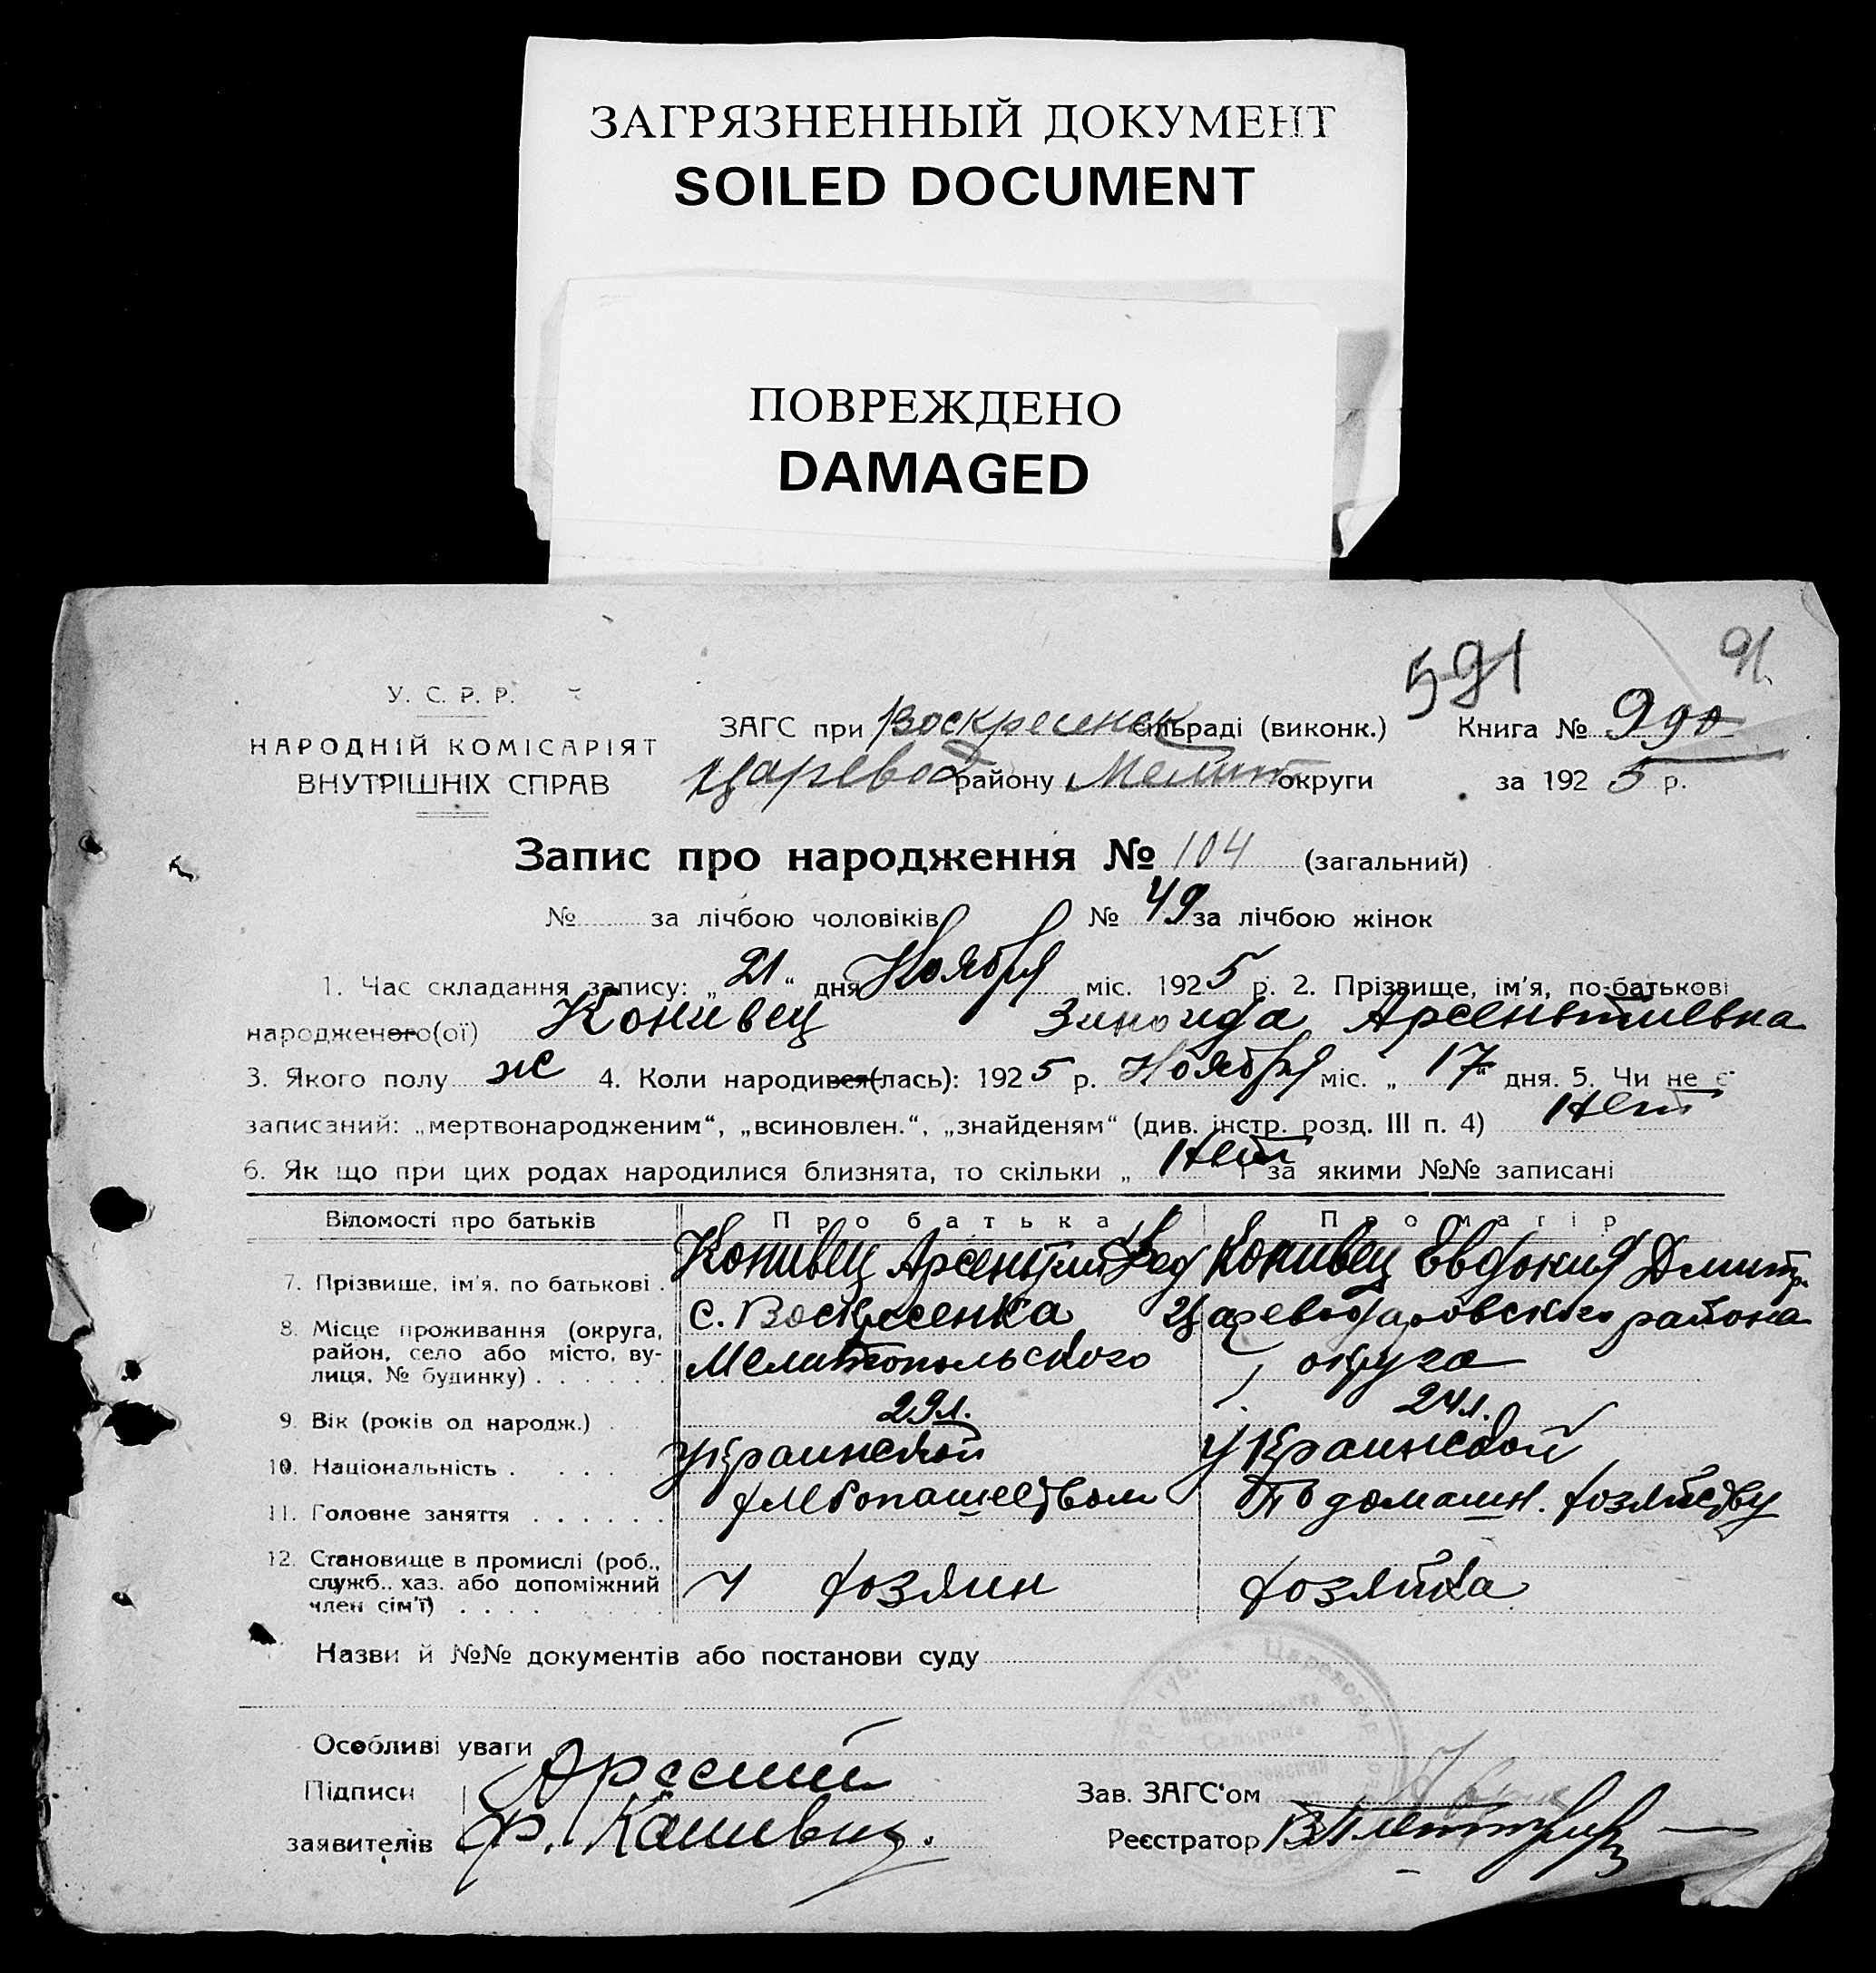 ЗАГРЯЗНЕННЫЙ ДОКУМЕНТ
SOILED DOCUMENT
ПОВРЕЖДЕНО
DAMAGED
591
91
У. С. Р. Р.
НАРОДНІЙ КОМІСАРІЯТ
ВНУТРІШНІХ СПРАВ
ЗАГС при Воскресенск сільраді (виконк.) Книга № 990
Царевод району Мелит округи за 1925 р.
Запис про народження № 104 (загальний)
№ за лічбою чоловіків № 49 за лічбою жінок
1. Час складання запису: „21“ дня Ноября міс. 1925 р. 2. Прізвище, ім'я, по-батькові
народженого(ої) Конивец Зиноида Арсентиевна
3. Якого полу ж 4. Коли народився(лась): 1925 р. Ноября міс. „17“ дня. 5. Чи не є
записаний: „мертвонародженим“, „всиновлен.“, „знайденям“ (див. інстр. розд. III п. 4) Нет
6. Як що при цих родах народилися близнята, то скільки „Нет“ і за якими №№ записані
Відомості про батьків Про батька Про матір
7. Прізвище, ім'я, по батькові Конивец Арсентий Конивец Евдокия Дмитр.
8. Місце проживання (округа, район, село або місто, вулиця, № будинку) с. Воскресенка Цареводаровского района
Мелитопольского округа
9. Вік (років од народж.) 29л. 24л.
10. Національність украинской украинской
11. Головне заняття хлебопашеством По домашн. хозяйству
12. Становище в промислі (роб., служб., хаз. або допоміжний член сім'ї) хозяин хозяйка
Назви й №№ документів або постанови суду
Особливі уваги
Підписи Арсений
Зав. ЗАГС'ом
заявителів
Реєстратор